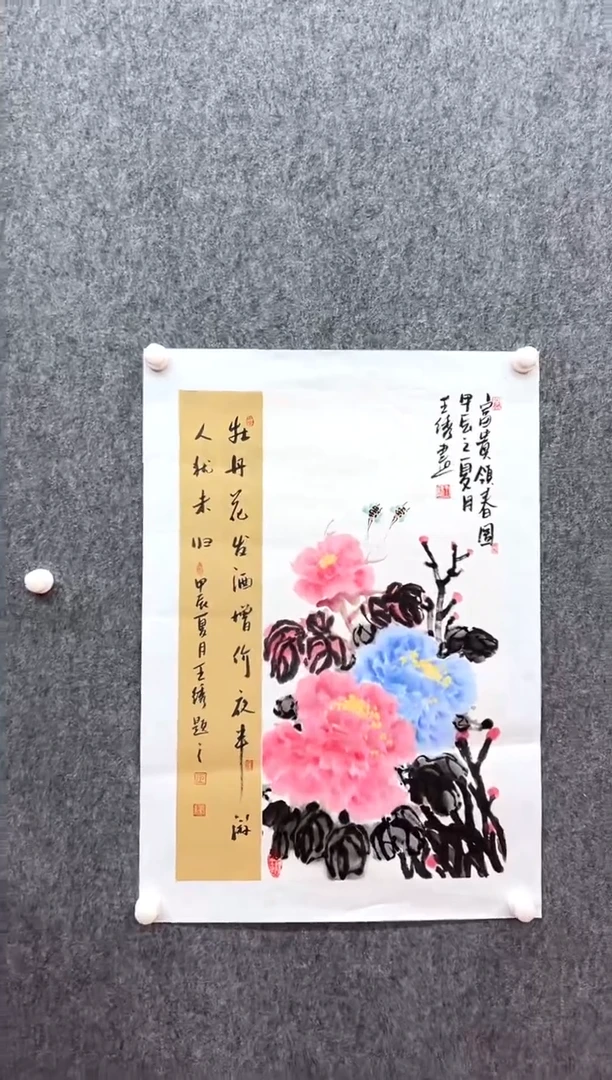 富貴领春图
甲辰之夏月
王绣画
牡丹花发酒增价夜半游
人犹未归 甲辰夏月王绣题之